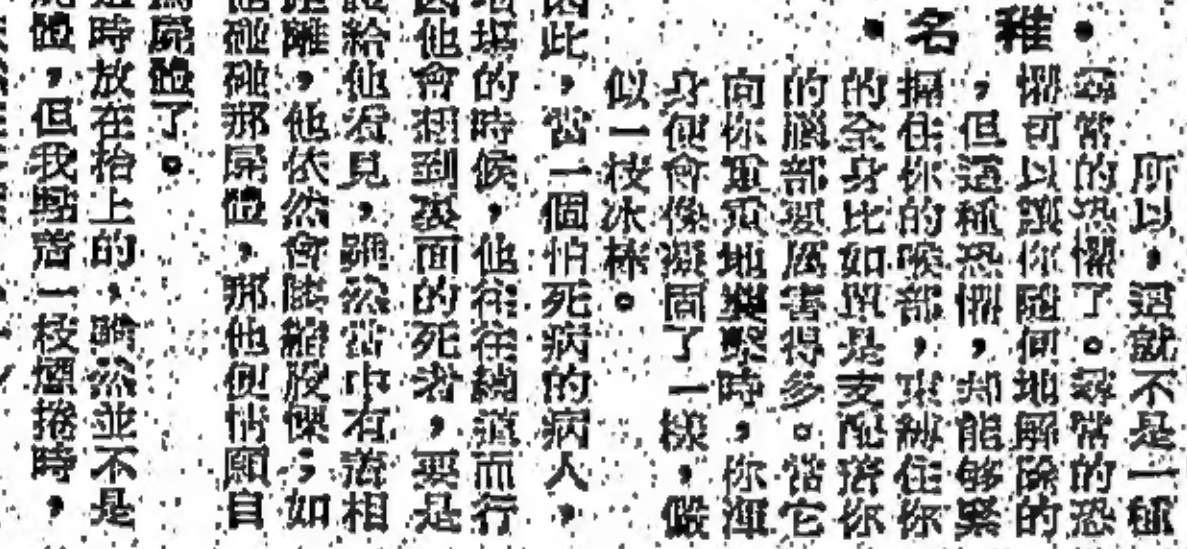 ・稚名・
所以，這就不是一種
尋常的恐懼了。尋常的恐
懼可以讓你隨何地解除的
，但這種恐懼，却能够緊
捆住你的喉部，束縛住你
的全身比如單是支配着你
的腦部要厲害得多。當它
向你重重地襲擊時，你渾
身便會像凝固了一樣，儼
似一枝冰棒。
因此，當一個怕死病的病人，
場的時候，他往往繞道而行
因他會想到裏面的死者，要是
給他看見，雖然當中有着相
距離，他依然會賅縮股慄；如
他碰碰那屍體，那他便情願自
為屍體了。
時放在枱上的，雖然並不是
屍體，但我點着一枝煙捲時，